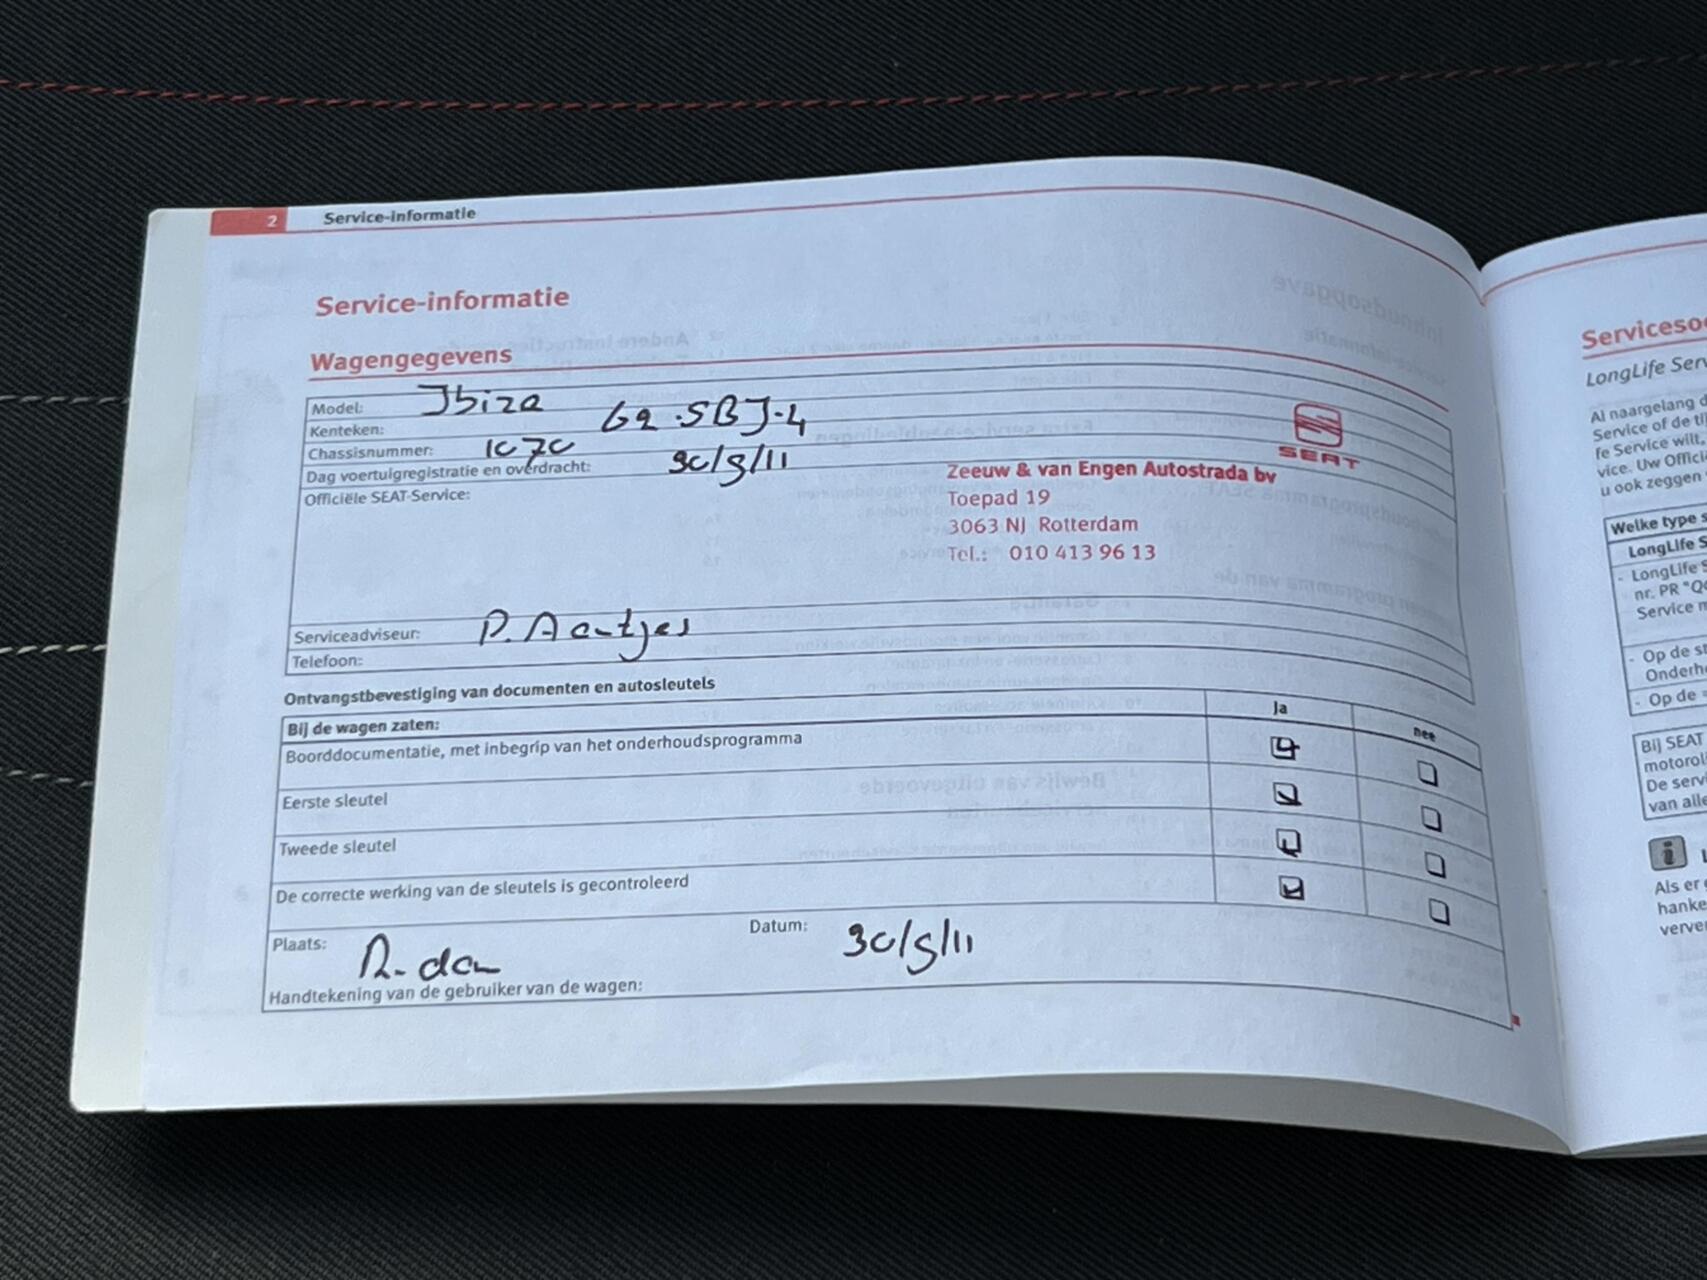 2 Service-informatie
Service-informatie
Wagengegevens
Model: Ibiza
Kenteken: 62-SBJ-4
Chassisnummer: 1070
Dag voertuigregistratie en overdracht: 30/5/11
Officiële SEAT-Service:
SEAT
Zeeuw & van Engen Autostrada bv
Toepad 19
3063 NJ Rotterdam
Tel.: 010 413 96 13
Serviceadviseur: P. Aantjes
Telefoon:
Ontvangstbevestiging van documenten en autosleutels
Bij de wagen zaten: Ja nee
Boorddocumentatie, met inbegrip van het onderhoudsprogramma
Eerste sleutel
Tweede sleutel
De correcte werking van de sleutels is gecontroleerd
Plaats: R-dam Datum: 30/5/11
Handtekening van de gebruiker van de wagen:
LongLife
Al naargelang
Service of de
fe Service wilt,
vice. Uw
u ook zeggen
Welke type
LongLife
LongLife
nr. PR
Service
- Op de
- Op de
Bij SEAT
De
van
Als er